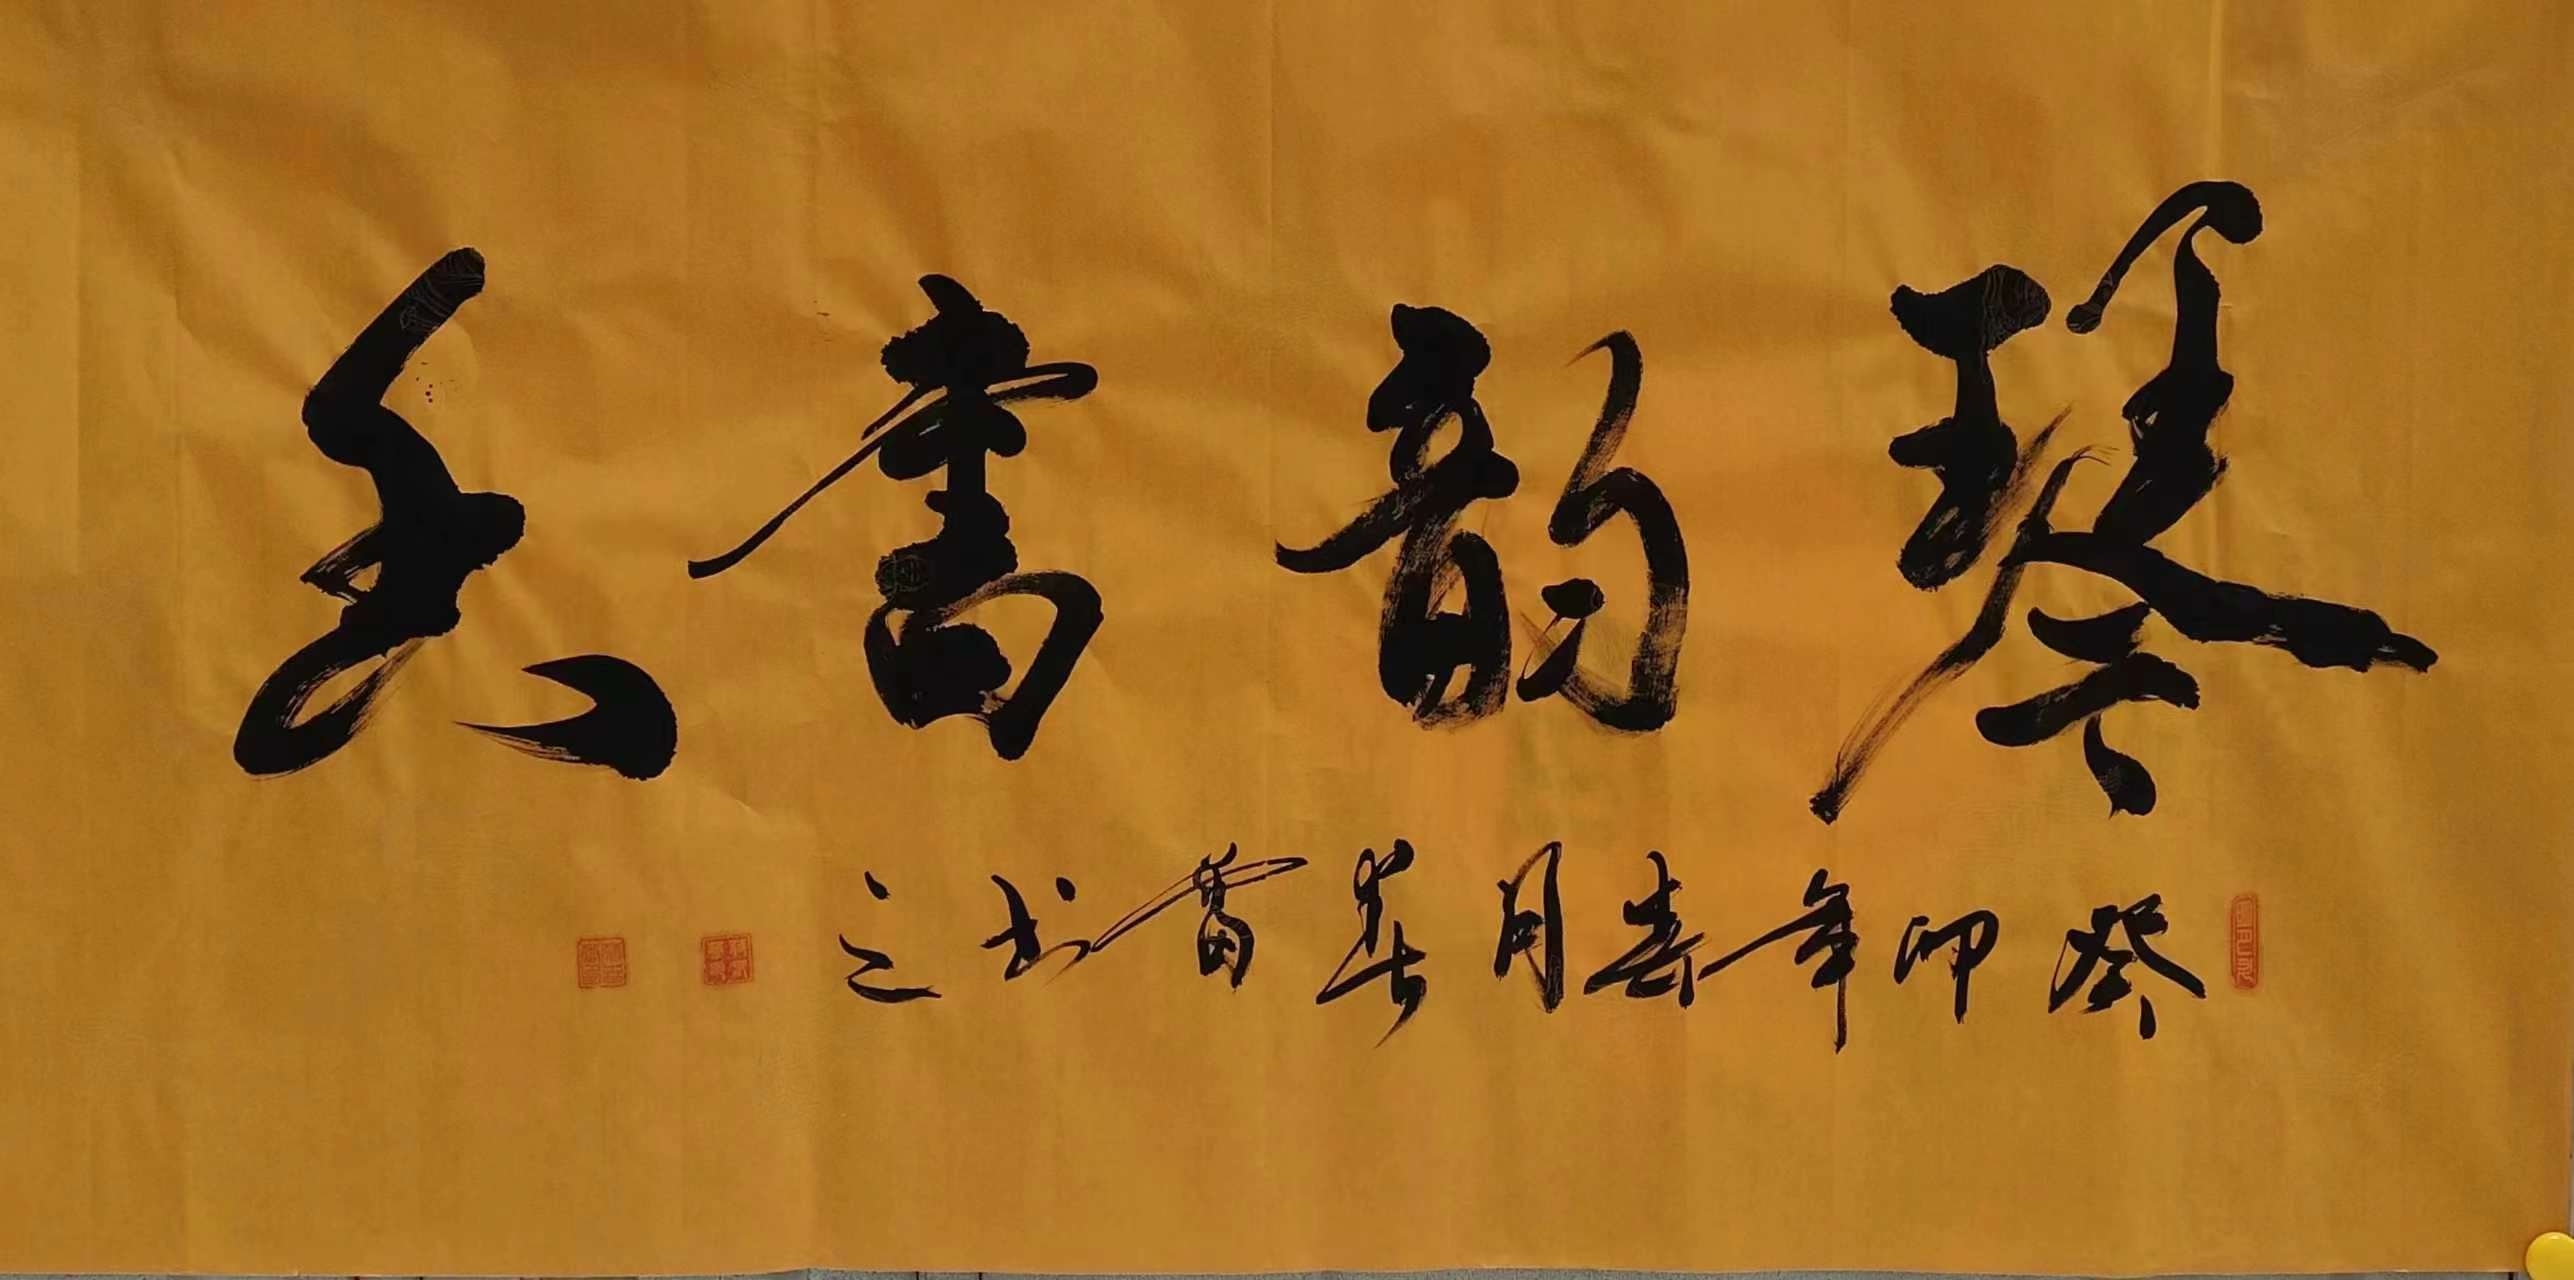 琴韵書香
癸卯年春月 書之